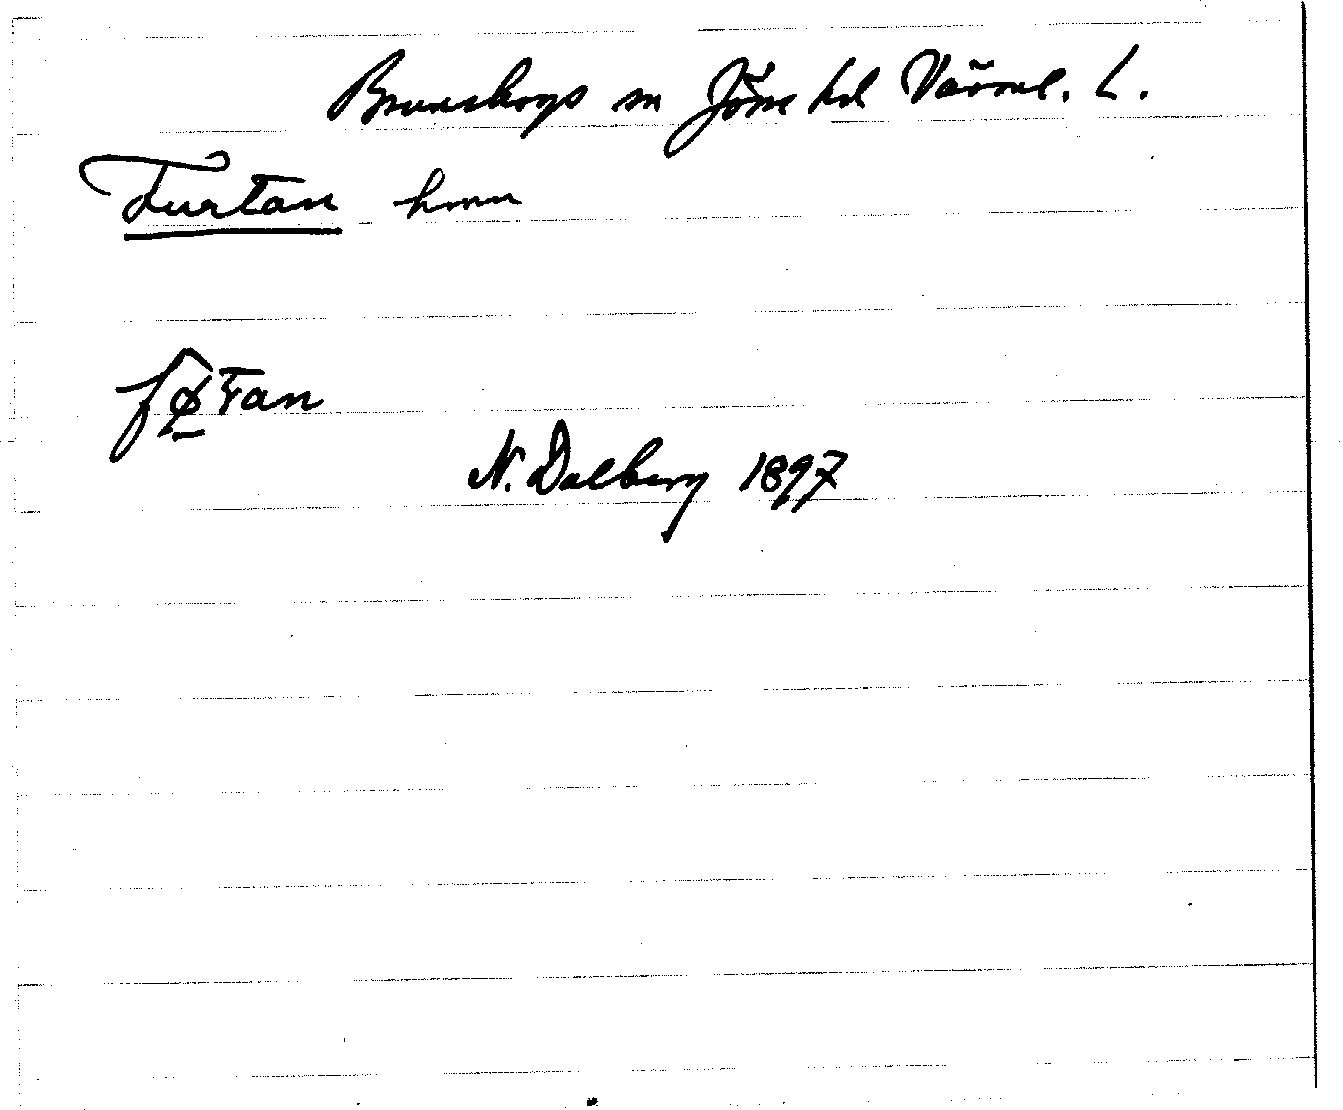 Brunskogs sn Jösse hd Värml. L.
Furtan hmn
N. Dalberg 1897